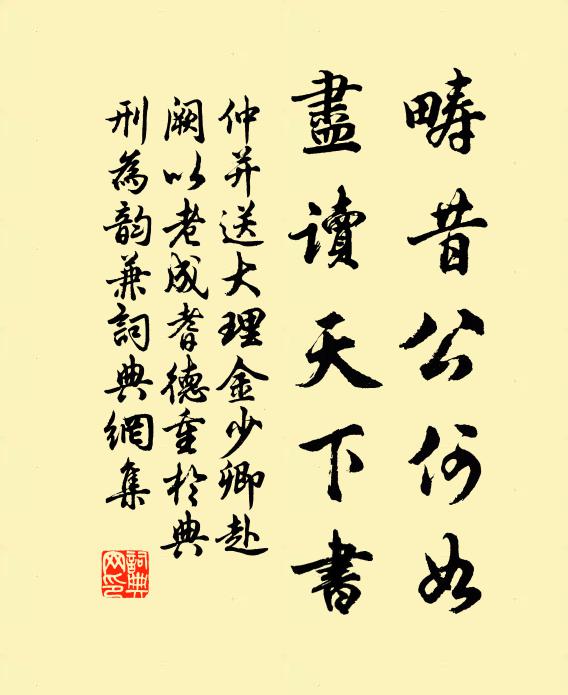 疇昔公何如
盡讀天下書
仲并送大理金少卿赴
闕以老成耆德重於典
刑為韵兼詞典網集
詞典網印